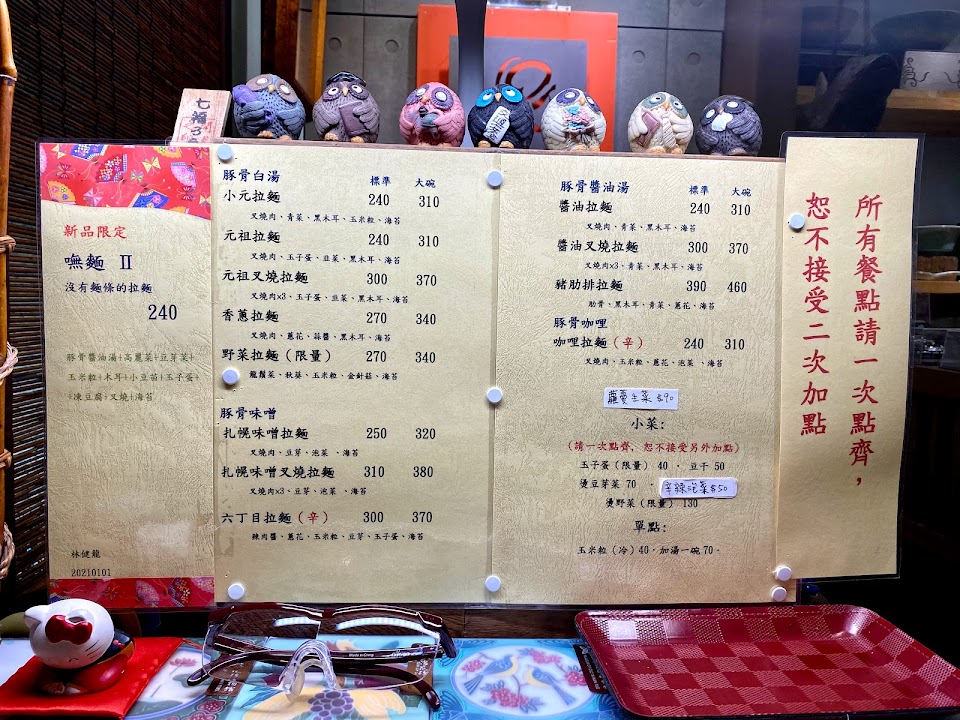 新品限定
嘸麵 II
沒有麵條的拉麵
240
豚骨醬油湯+高麗菜+豆芽菜+
玉米粒+木耳+小豆苗+玉子蛋+
凍豆腐+叉燒+海苔
林健龍
20210101
豚骨白湯 標準 大碗
小元拉麵 240 310
叉燒肉、青菜、黑木耳、玉米粒、海苔
元祖拉麵 240 310
叉燒肉、玉子蛋、韭菜、黑木耳、海苔
元祖叉燒拉麵 300 370
叉燒肉x3、玉子蛋、韭菜、黑木耳、海苔
香蔥拉麵 270 340
叉燒肉、蔥花、蒜醬、黑木耳、海苔
野菜拉麵（限量） 270 340
龍鬚菜、秋葵、玉米粒、金針菇、海苔
豚骨味噌
扎幌味噌拉麵 250 320
叉燒肉、豆芽、泡菜 、海苔
扎幌味噌叉燒拉麵 310 380
叉燒肉x3、豆芽、泡菜 、海苔
六丁目拉麵（辛） 300 370
辣肉醬、蔥花、玉米粒、豆芽、玉子蛋、海苔
豚骨醬油湯 標準 大碗
醬油拉麵 240 310
叉燒肉、青菜、黑木耳、海苔
醬油叉燒拉麵 300 370
叉燒肉x3、青菜、黑木耳、海苔
豬肋排拉麵 390 460
肋骨、黑木耳、青菜、蔥花、海苔
豚骨咖哩
咖哩拉麵（辛） 240 310
叉燒肉、玉米粒、蔥花、泡菜 、海苔
蘿蔓生菜 $90
小菜:
(請一次點齊, 恕不接受另外加點)
玉子蛋（限量） 40 ． 豆干 50
燙豆芽菜 70 ． 辛辣泡菜$50
燙野菜（限量） 130
單點:
玉米粒（冷）40．加湯一碗 70．
所有餐點請一次點齊，
恕不接受二次加點